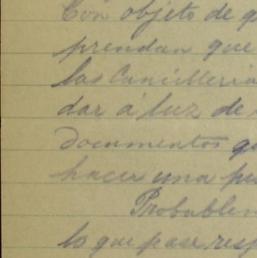 Con objeto de q
prendan que
las Cancilleria
dar á luz de
documentos q
hacer una pu
Probablem
lo que pase resp